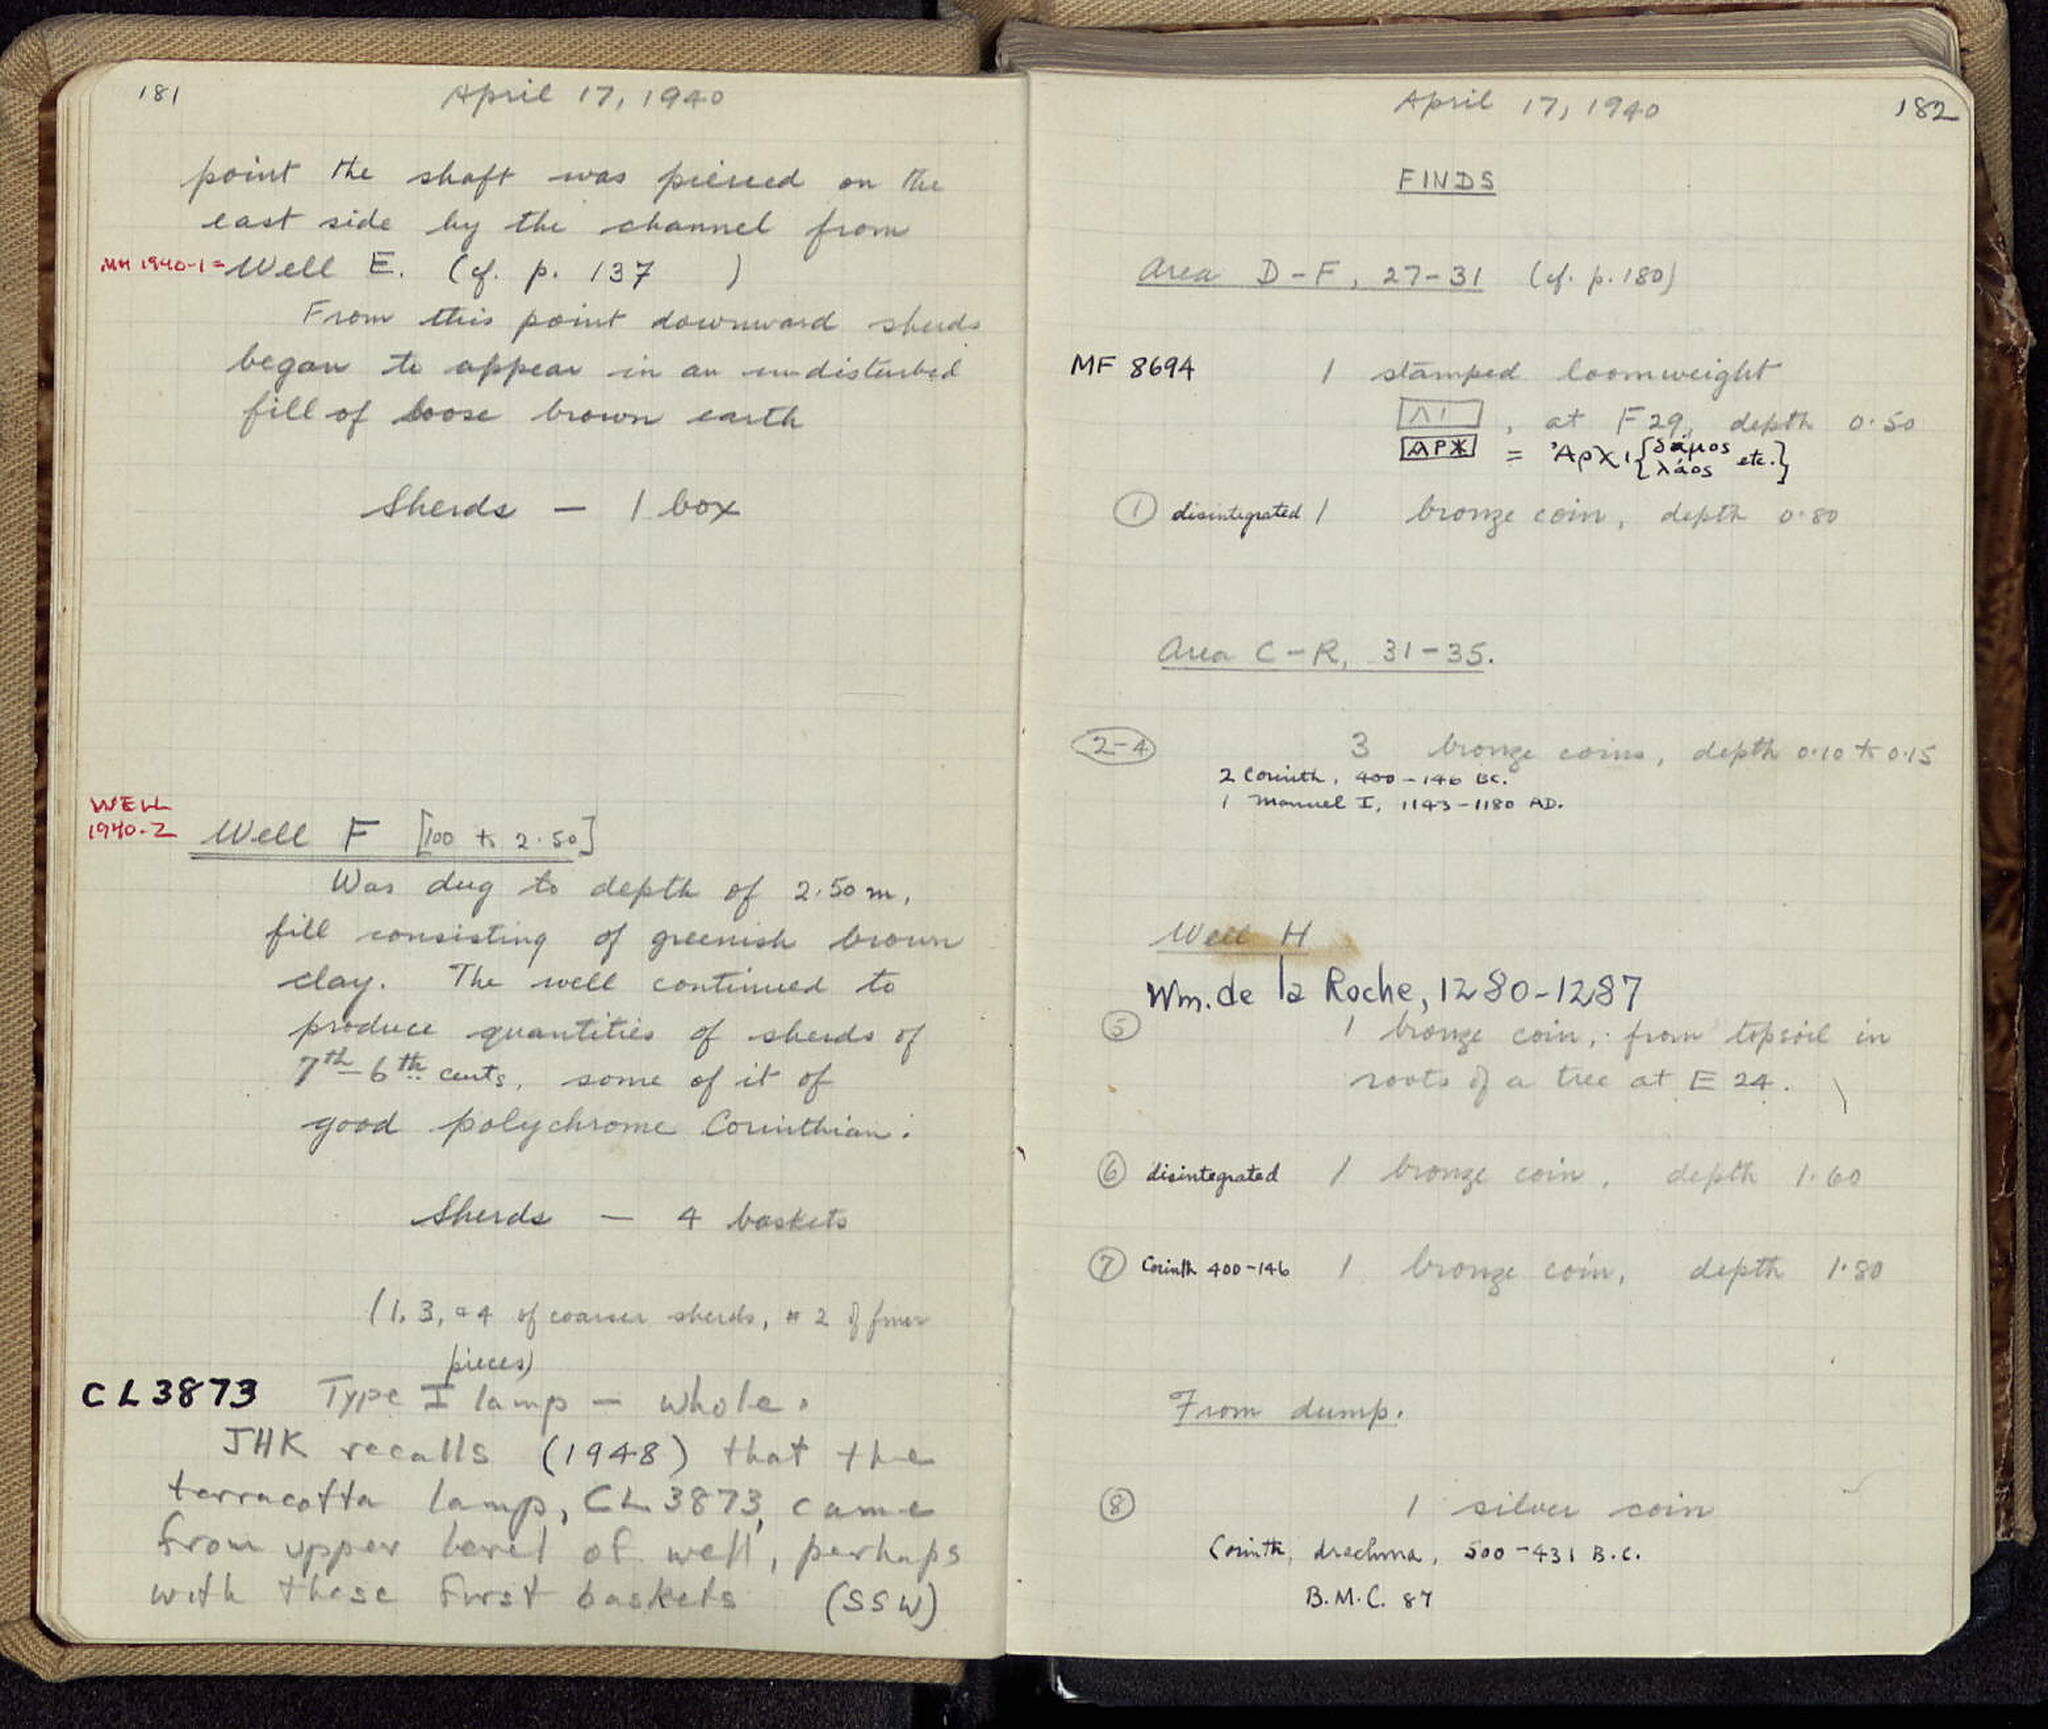 181
April 17, 1940
point the shaft was pierced on the
east side by the channel from
MH 1940-1= Well E. (cf. p. 137 )
From this point downward sherds
began to appear in an undisturbed
fill of loose brown earth
Sherds — 1 box
WELL
1940-2
Well F [100 to 2.50]
Was dug to depth of 2.50 m,
fill consisting of greenish brown
clay. The well continued to
produce quantities of sherds of
7th-6th cents, some of it of
good polychrome Corinthian.
Sherds — 4 baskets
(1, 3, + 4 of coarser sherds, # 2 of finer
pieces)
CL3873 Type I lamp — whole.
JHK recalls (1948) that the
terracotta lamp, CL 3873, came
from upper level of well, perhaps
with these first baskets (SSW)
April 17, 1940
182
FINDS
Area D-F, 27-31 (cf. p. 180)
MF 8694 1 stamped loomweight
, at F 29, depth 0.50
= Ἀρχι{δάμος
λάος etc.}
① disintegrated 1 bronze coin, depth 0.80
Area C-R, 31-35.
2-4 3 bronze coins, depth 0.10 to 0.15
2 Corinth, 400-146 BC.
1 Manuel I, 1143-1180 AD.
Well H
Wm. de la Roche, 1280-1287
⑤ 1 bronze coin, from topsoil in
roots of a tree at E 24.
⑥ disintegrated 1 bronze coin, depth 1.60
⑦ Corinth 400-146 1 bronze coin, depth 1.80
From dump.
⑧ 1 silver coin
Corinth, drachma, 500-431 B.C.
B.M.C. 87